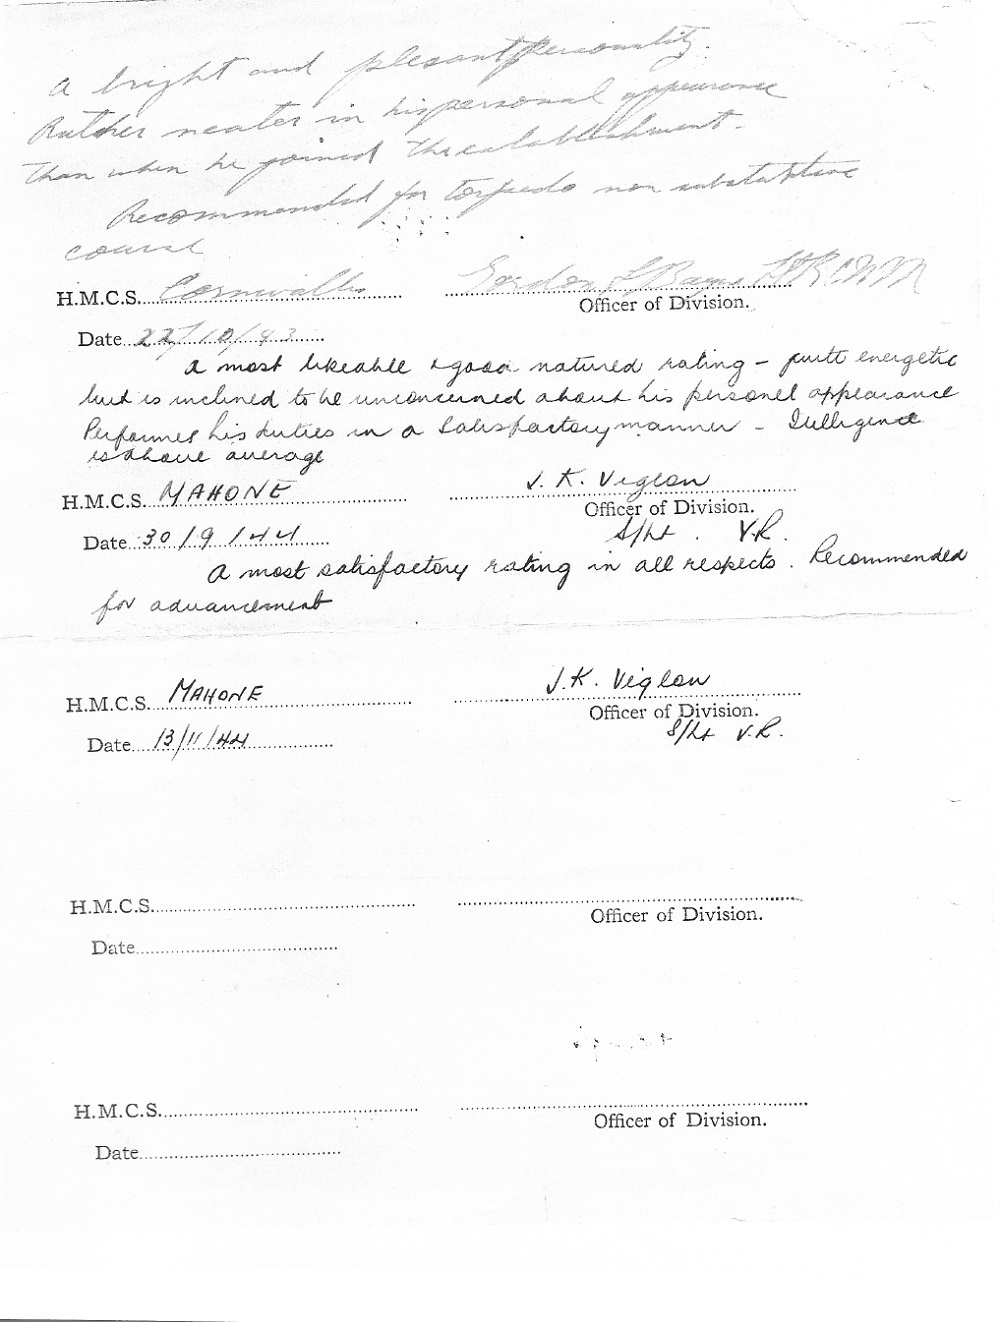 A bright and plesant personality.
Rather neater in his personal appearance
than when he joined the establishment.
Recommended for torpedo non substantive
course
H.M.C.S. Cornwallis Gordon
Officer of Division.
Date 22/10/43
A most likeable & good natured rating – quite energetic
but is inclined to be unconcerned about his personel appearance
Performes his duties in a satisfactory manner – Intelligence
is above average
H.M.C.S. MAHONE J. K. Viglon
Officer of Division.
Date 30/9/44 S/Lt. V.R.
A most satisfactory rating in all respects. Recommended
for advancement
H.M.C.S. MAHONE J.K. Viglon
Officer of Division.
Date 13/11/44 S/Lt V.R.
H.M.C.S.
Officer of Division.
Date
H.M.C.S.
Officer of Division.
Date